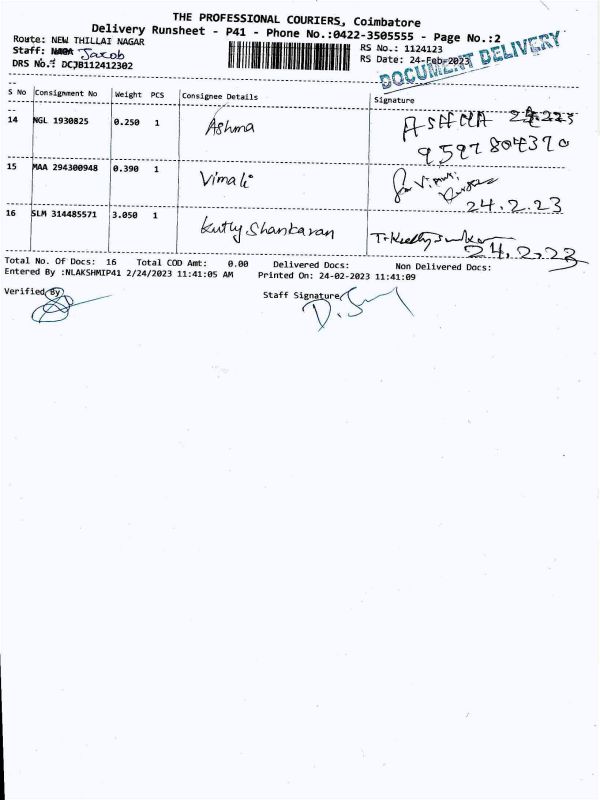 THE PROFESSIONAL COURIERS, Coimbatore
Delivery Runsheet - P41 - Phone No.:0422-3505555 - Page No.:2
Route: NEW THILLAI NAGAR
RS No.: 1124123
Staff: NAGA Jacob
RS Date: 24-Feb-2023
DRS No.: DCJB112412302
DOCUMENT DELIVERY
S No Consignment No Weight PCS Consignee Details Signature
14 NGL 1930825 0.250 1 Ashma ASHMA
9597804370
15 MAA 294300948 0.390 1 Vimali
24.2.23
16 SLM 314485571 3.050 1 Kutty Shankaran
24.2.23
Total No. Of Docs: 16 Total COD Amt: 0.00 Delivered Docs: Non Delivered Docs:
Entered By :NLAKSHMIP41 2/24/2023 11:41:05 AM Printed On: 24-02-2023 11:41:09
Verified By
Staff Signature